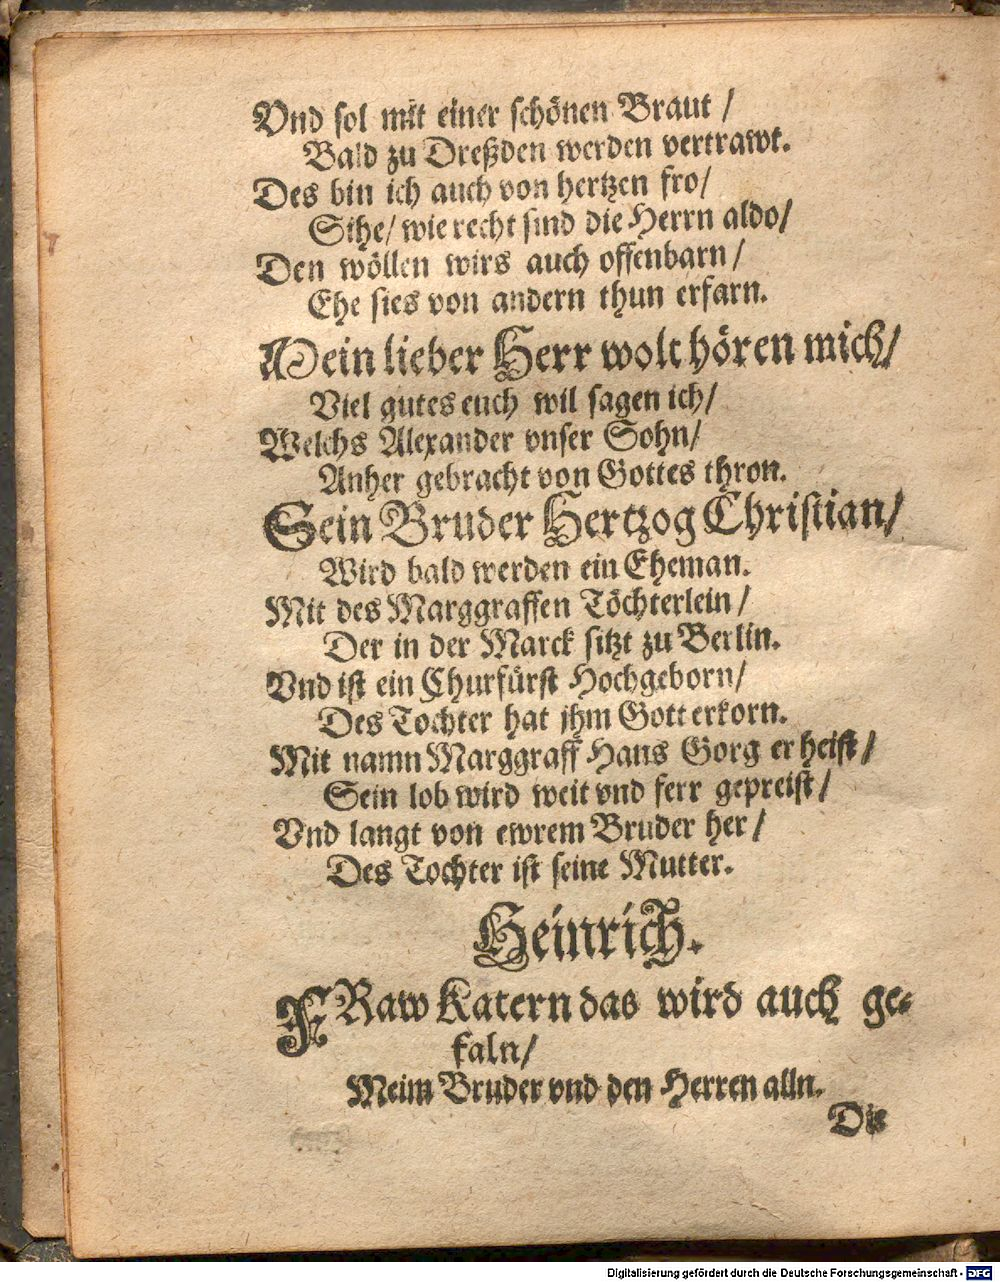 Vnd sol mit einer schönen Braut /
Bald zu Dreßden werden vertrawt.
Des bin ich auch von hertzen fro/
Sihe/ wie recht sind die Herrn aldo/
Den wöllen wirs auch offenbarn/
Ehe sies von andern thun erfarn.
Mein lieber Herr wolt hören mich/
Viel gutes euch wil sagen ich/
Welchs Alexander vnser Sohn/
Anher gebracht von Gottes thron.
Sein Bruder Hertzog Christian/
Wird bald werden ein Eheman.
Mit des Marggraffen Töchterlein/
Der in der Marck sitzt zu Berlin.
Vnd ist ein Churfürst Hochgeborn/
Des Tochter hat jhm Gott erkorn.
Mit namn Marggraff Hans Gorg er heist/
Sein lob wird weit vnd ferr gepreist/
Vnd langt von ewrem Bruder her/
Des Tochter ist seine Mutter.
Heinrich.
FRaw Katern das wird auch ge-
faln/
Meim Bruder vnd den Herren alln.
Die
Digitalisierung gefördert durch die Deutsche Forschungsgemeinschaft - DFG